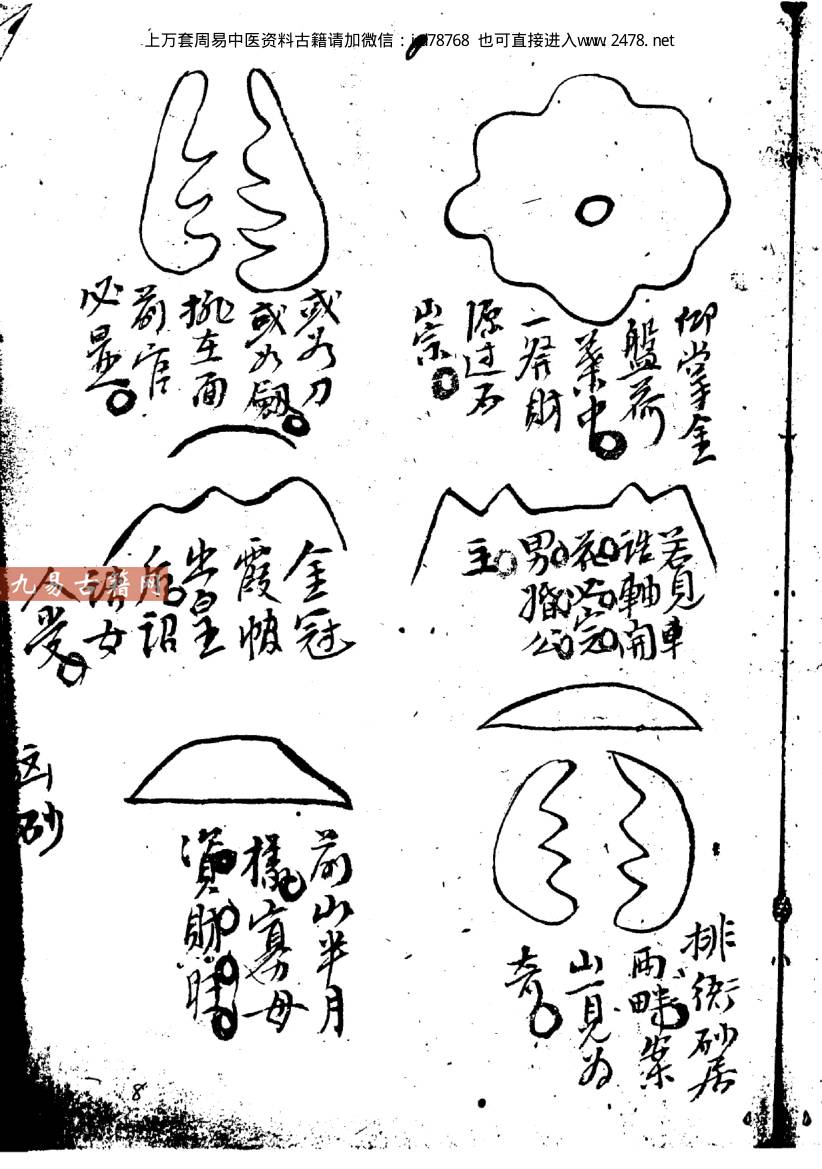 上万套周易中医资料古籍请加微信：
78768 也可直接进入www.2478.net
仰掌金
盤荷
葉中
一發財
源过石
山宗
或如刀
或如劍
挑在面
前官
必是
若見車
誥軸開
花
男婚公
主
金冠
霞帔
出皇
后詔
女
人受
九易古籍网
排衙砂居
兩畔案
山一見为
前山半月
樣寡母
資財旺
砂
8